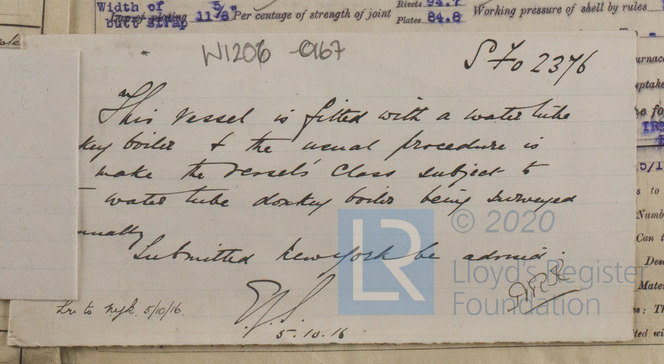 Width of
butt strap 11 5/8" Per centage of strength of joint
Rivets 94.7
Plates 84.8
Working pressure of shell by rules
W1206-0167
This vessel is fitted with a water tube
key boiler & the usual procedure is
make the vessel's class subject to
water tube donkey boiler being surveyed
nually
Submitted New York be advised
Lr. to Nyk. 5/10/16.
5.10.16
© 2020
LR
Lloyd's Register
Foundation